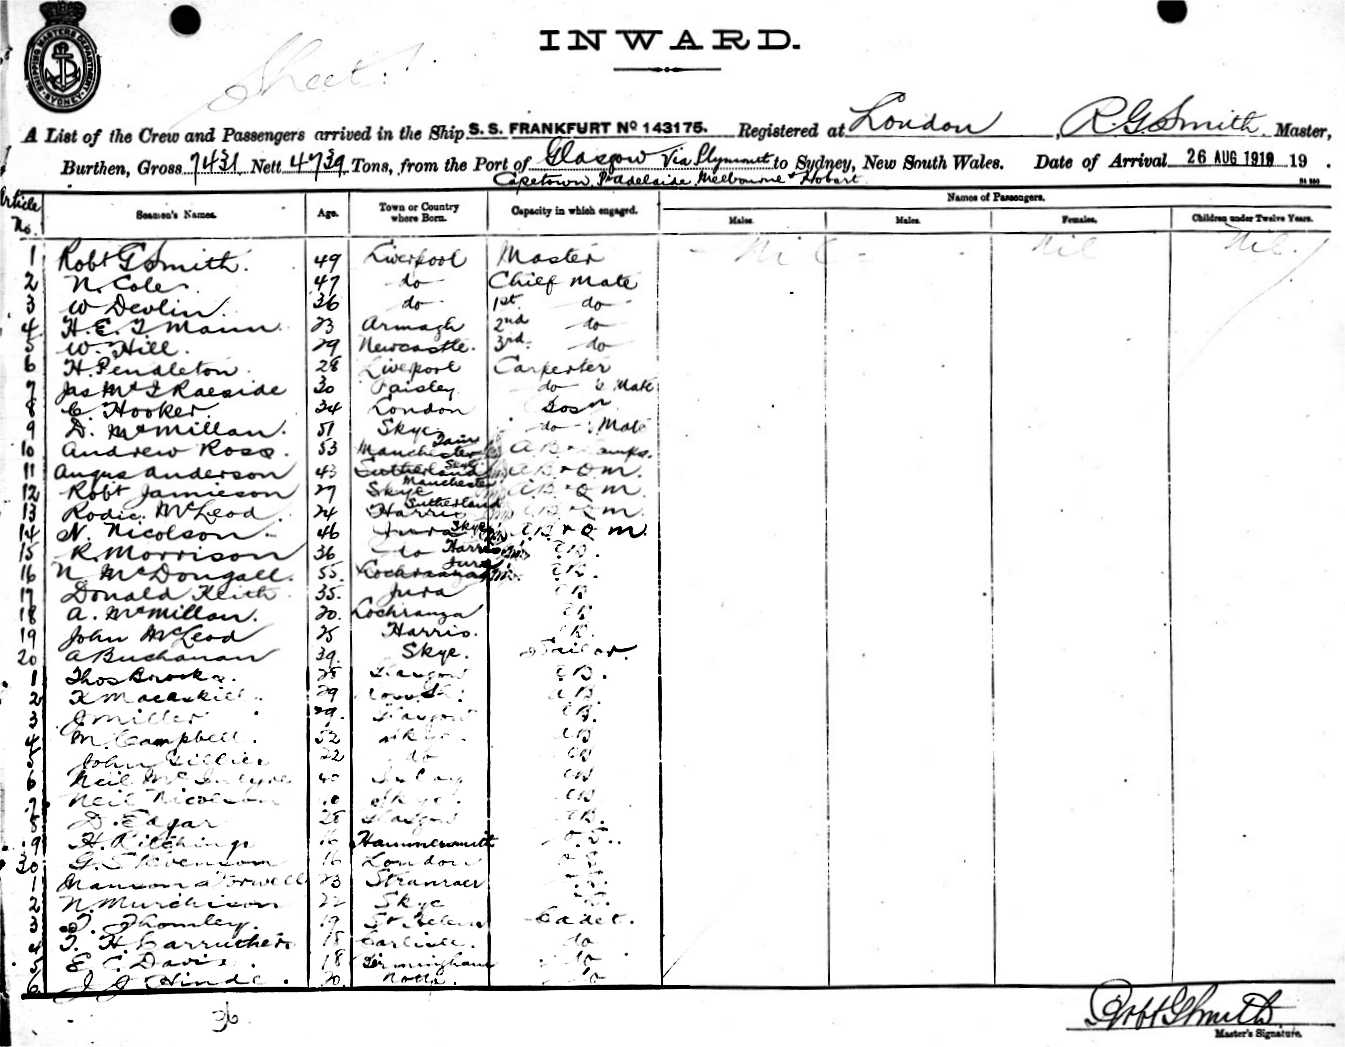 SHIPPING MASTERS DEPARTMENT SYDNEY
Sheet 1.
INWARD.
A List of the Crew and Passengers arrived in the Ship S. S. FRANKFURT No 143175. Registered at London, R G Smith Master,
Burthen, Gross 7431 Nett 4739 Tons, from the Port of Glasgow Via Plymouth to Sydney, New South Wales. Date of Arrival 26 AUG 1919 19 .
Capetown, Pt Adelaide, Melbourne & Hobart
Article No. Seamen's Names. Age. Town or Country where Born. Capacity in which engaged. Names of Passengers.
Males. Males. Females. Children under Twelve Years.
1 Robt G Smith. 49 Liverpool Master Nil Nil Nil.
2 N. Cole. 47 do Chief Mate
3 W Devlin. 36 do 1st do
4 H. E. T Mann 23 Armagh 2nd do
5 W. Hill. 29 Newcastle. 3rd. do
6 H. Pendleton 28 Liverpool Carpenter
7 Jas McI Raeside 30 Paisley do Mate
8 C. Hooker. 34 London Bosn
9 D. McMillan. 51 Skye do Mate
10 Andrew Ross. 53 Manchester Tain AB Lamps.
11 Angus Anderson 43 Sutherland Skye AB & Q M.
12 Robt Jamieson 27 Skye Manchester AB & Q M
13 Rodic. McLeod. 24 Harris Sutherland AB & Q M.
14 N. Nicolson. 46 Jura Skye AB & Q M
15 R. Morrison 36 do Harris AB.
16 N McDougall. 55. Lochranza Jura AB.
17 Donald Keith 35. Jura AB
18 A. McMillan. 20. Lochranza AB
19 John McLeod 25 Harris. AB.
20 A Buchanan 39 Skye. Sailor.
1 Thos Brooks. 28 Glasgow AB.
2 K Macaskill. 29 AB.
3 J Miller 29. Glasgow AB.
4 M. Campbell. 52 Skye. AB
5 John Gillies 22 do AB
6 Neil McIntyre 40 AB
7 Neil Nicolson Skye. AB
8 D. Edgar 28 Glasgow AB.
9 H. Kitching 16 Hammersmith O.S..
30 G. Stevenson 16 London O.S
1 23 Stranraer
2 N. Murchison 22 Skye
3 T. Thomley. 19 St Helens Cadet.
4 T. H. Carruthers 18 Carlisle. do
5 E C. Davis. 18 Birmingham do
6 J J Hinde. 20. Notts. do
36
Robt G Smith
Master's Signature.